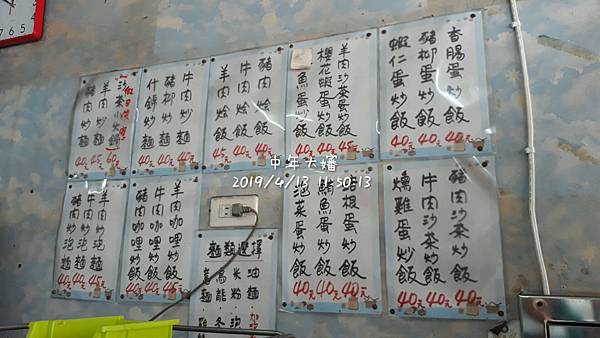 香腸蛋炒飯 40元
豬柳蛋炒飯 40元
蝦仁蛋炒飯 40元
羊肉沙茶炒飯 45元
櫻花蝦蛋炒飯 40元
魚蛋炒飯 40元
豬肉燴飯 40元
牛肉燴飯 40元
羊肉燴飯 45元
牛肉炒麵 40元
豬柳炒麵 40元
什錦炒麵 45元
沙茶小火鍋 60元
羊肉炒麵 45元
豬肉炒麵 40元
豬肉沙茶炒飯 40元
牛肉沙茶炒飯 40元
燻雞蛋炒飯 40元
培根蛋炒飯 40元
鮪魚蛋炒飯 40元
泡菜蛋炒飯 40元
麵類選擇
油麵
米粉
烏龍
意麵
羊肉咖哩炒飯 45元
牛肉咖哩炒飯 40元
豬肉咖哩炒飯 40元
羊肉炒泡麵 45元
牛肉炒泡麵 40元
豬肉炒泡麵 40元
中年大嬸
2019/4/13 11:50:13